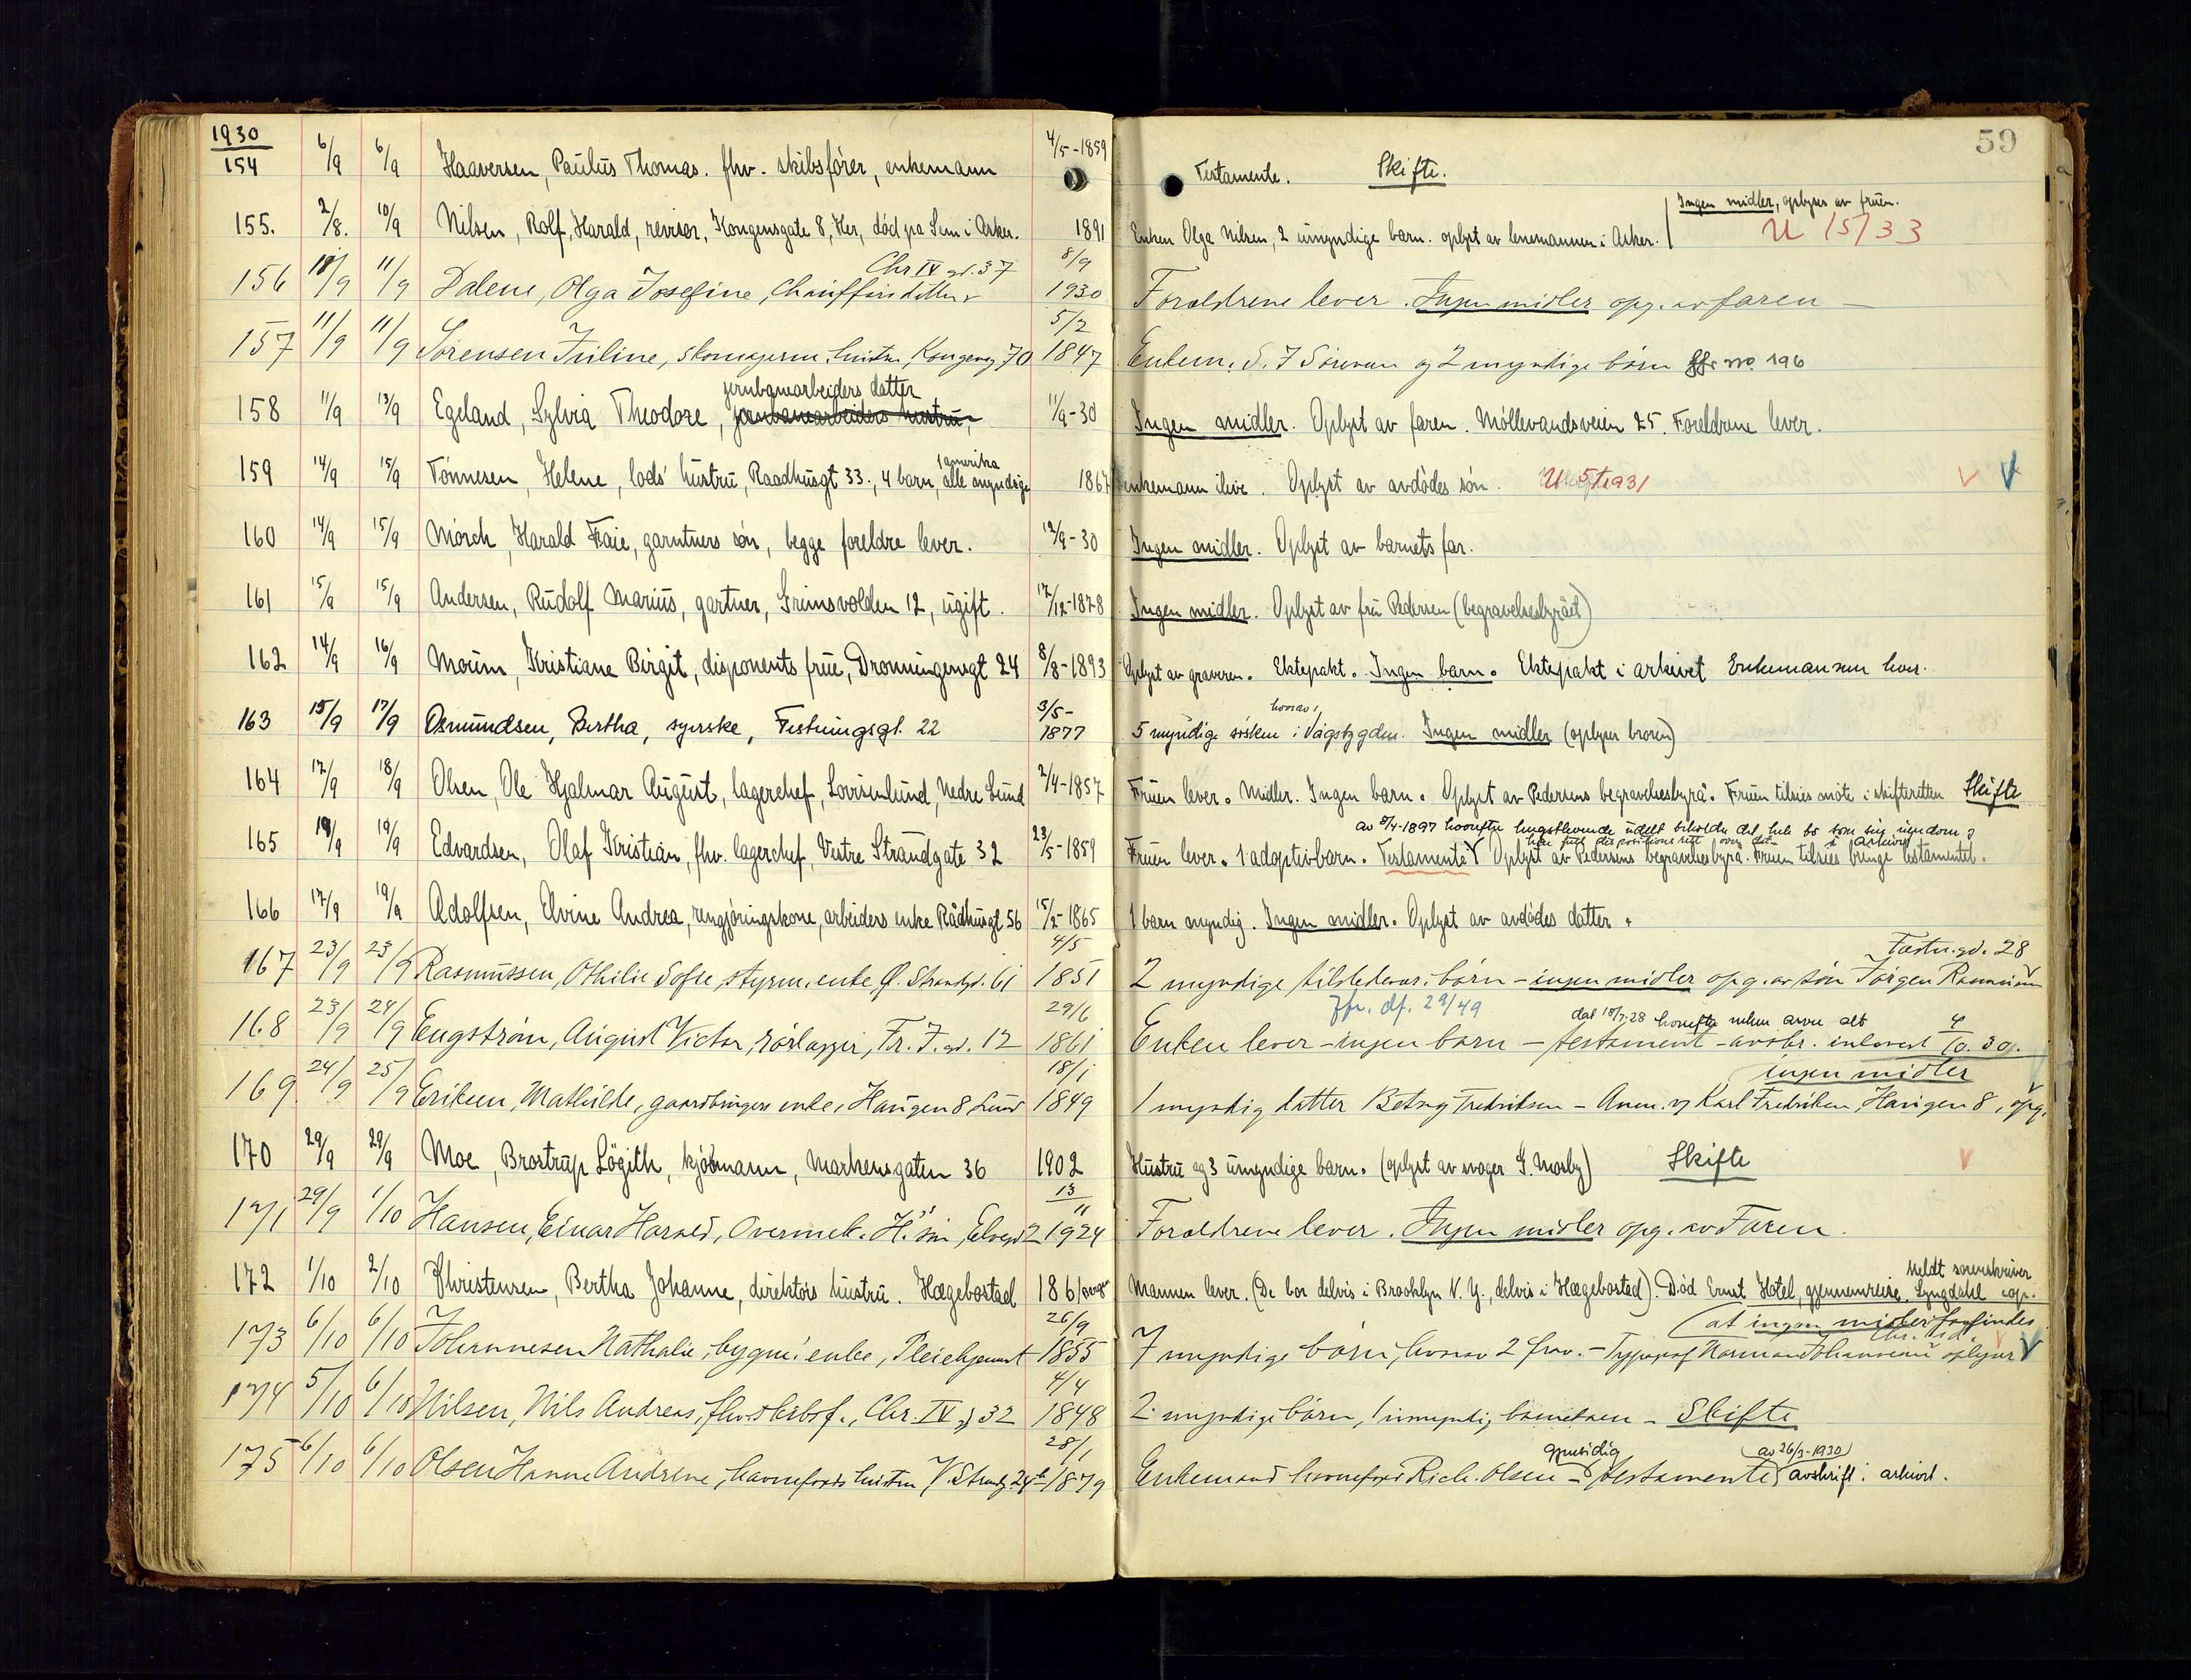 1930
59
154 6/9 6/9 Haaversen, Paulus Thomas. fhv. skibsfører, enkemann 4/5-1859 Testamente. Skifte.
Ingen midler, oplyses av fruen.
155. 2/8. 10/9 Nilsen, Rolf, Harald, revisor, Kongensgate 8, Her, død på Sem i Asker. 1891 Enken Olga Nilsen, 2 umyndige barn. oplyst av lensmannen i Asker. U 15/33
Chr IV gd. 37 8/9
156 10/9 11/9 Dalene, Olga Josefine, Chaufførs datter 1930 Forældrene lever. Ingen midler opg. av faren —
5/2
157 11/9 11/9 Sørensen Juline, skomagerm. hustru, Kongensg 70 1847 Enkem. S. J Sørensen og 2 myndige børn jfr. no. 196
jernbanearbeiders datter
158 11/9 13/9 Egeland, Sylvia Theodore, jernbanearbeiders hustru, 11/9-30 Ingen midler. Oplyst av faren. Møllevandsveien 25. Foreldrene lever.
1 amerika
159 14/9 15/9 Tønnesen, Helene, lods' hustru, Raadhusgt 33., 4 barn, alle myndige 1867 enkemann ilive. Oplyst av avdødes søn. U 5/1931
160 14/9 15/9 Mørch, Harald Faie, gartners søn, begge foreldre lever. 12/9-30 Ingen midler. Oplyst av barnets far.
161 15/9 15/9 Andersen, Rudolf Marius, gartner, Grimsvolden 12, ugift. 17/12-1878 Ingen midler. Oplyst av fru Pedersen (begravelsesbyrået)
162 14/9 16/9 Moum, Kristiane Birgit, disponents frue, Dronningensgt 24 8/8-1893 Oplyst av graveren. Ektepakt. Ingen barn. Ektepakt i arkivet Enkemannen hver.
hvorav 1 3/5-
163 15/9 17/9 Osmundsen, Bertha, syerske, Festningsgt. 22 1877 5 myndige søsken i Vågsbygden. Ingen midler (oplyser broren)
164 17/9 18/9 Olsen, Ole Hjalmar August, lagerchef, Lovisenlund, Nedre Lund 2/4-1857 Fruen lever. Midler. Ingen barn. Oplyst av Pedersens begravelsesbyrå. Fruen tilsies møte i skifteretten Skifte
av 8/4-1897 hvorefter lengstlevende udelt beholder det hele bo som sin eiendom og
har full disposisjonsrett over det. i Arkivet
165 19/9 19/9 Edvardsen, Olaf Kristian, fhv. lagerchef, Vestre Strandgate 32 23/5-1859 Fruen lever. 1 adoptivbarn. Testamente Oplyst av Pedersens begravelsesbyrå. Fruen tilsies bringe testamentet.
166 17/9 19/9 Adolfsen, Elvine Andrea, rengjøringskone, arbeiders enke Rådhusgt 56 15/2-1865 1 barn myndig. Ingen midler. Oplyst av avdødes datter.
4/5 Festn.gd. 28
167 23/9 23/9 Rasmussen, Othilie Sofie, styrm. enke Ø. Strandgd. 61 1851 2 myndige tilstedevær. børn – ingen midler opg. av søn Jørgen Rasmussen
29/6 Jfr. df. 29/49 dat 15/7.28 hvorefter enken arver alt 4
168 23/9 24/9 Engström, August Victor, rörlægger, Fr. F. gd. 12 1861 Enken lever – ingen børn – testament – avskr. inlevert 10.30.
18/1 ingen midler
169 24/9 25/9 Eriksen, Mathilde, gaardbrugers enke, Haugen 8 Lund 1849 1 myndig datter Betsy Fredriksen – Anm. v/ Karl Fredriksen, Haugen 8, opg.
170 29/9 29/9 Moe, Brostrup Lögith, kjøbmann, Markensgaten 36 1902 Hustru og 3 umyndige barn. (oplyst av svoger G. Mosby) Skifte
13/11
171 29/9 1/10 Hansen, Einar Harald, Overmek. H.s' søn, Elvegd 2 1924 Forældrene lever. Ingen midler opg. av Faren.
Meldt sorenskriver
172 1/10 2/10 Christensen, Bertha Johanne, direktørs hustru. Hægebostad 1861 Mannen lever. (De bor delvis i Brooklyn N. Y., delvis i Hægebostad). Død Ernst Hotel, gjennemreise. Lyngdahl op.
26/9 at ingen midler forefindes
173 6/10 6/10 Johannesen Nathalie, bygm. enke, Pleiehjemmet 1855 7 myndige børn, hvorav 2 frav. – Typograf Norman Johannesen oplyser
4/4
174 5/10 6/10 Nilsen, Nils Andreas, fhv. skibsf., Chr. IV gd 32 1848 2 myndige børn, 1 umyndig barnebarn – Skifte
28/1 gjensidig av 26/3-1930
175 6/10 6/10 Olsen Hanne Andrine, havnefogds hustru V. Strandg. 24b 1879 Enkemand havnefogd Rich. Olsen – testamente avskrift i arkivet.